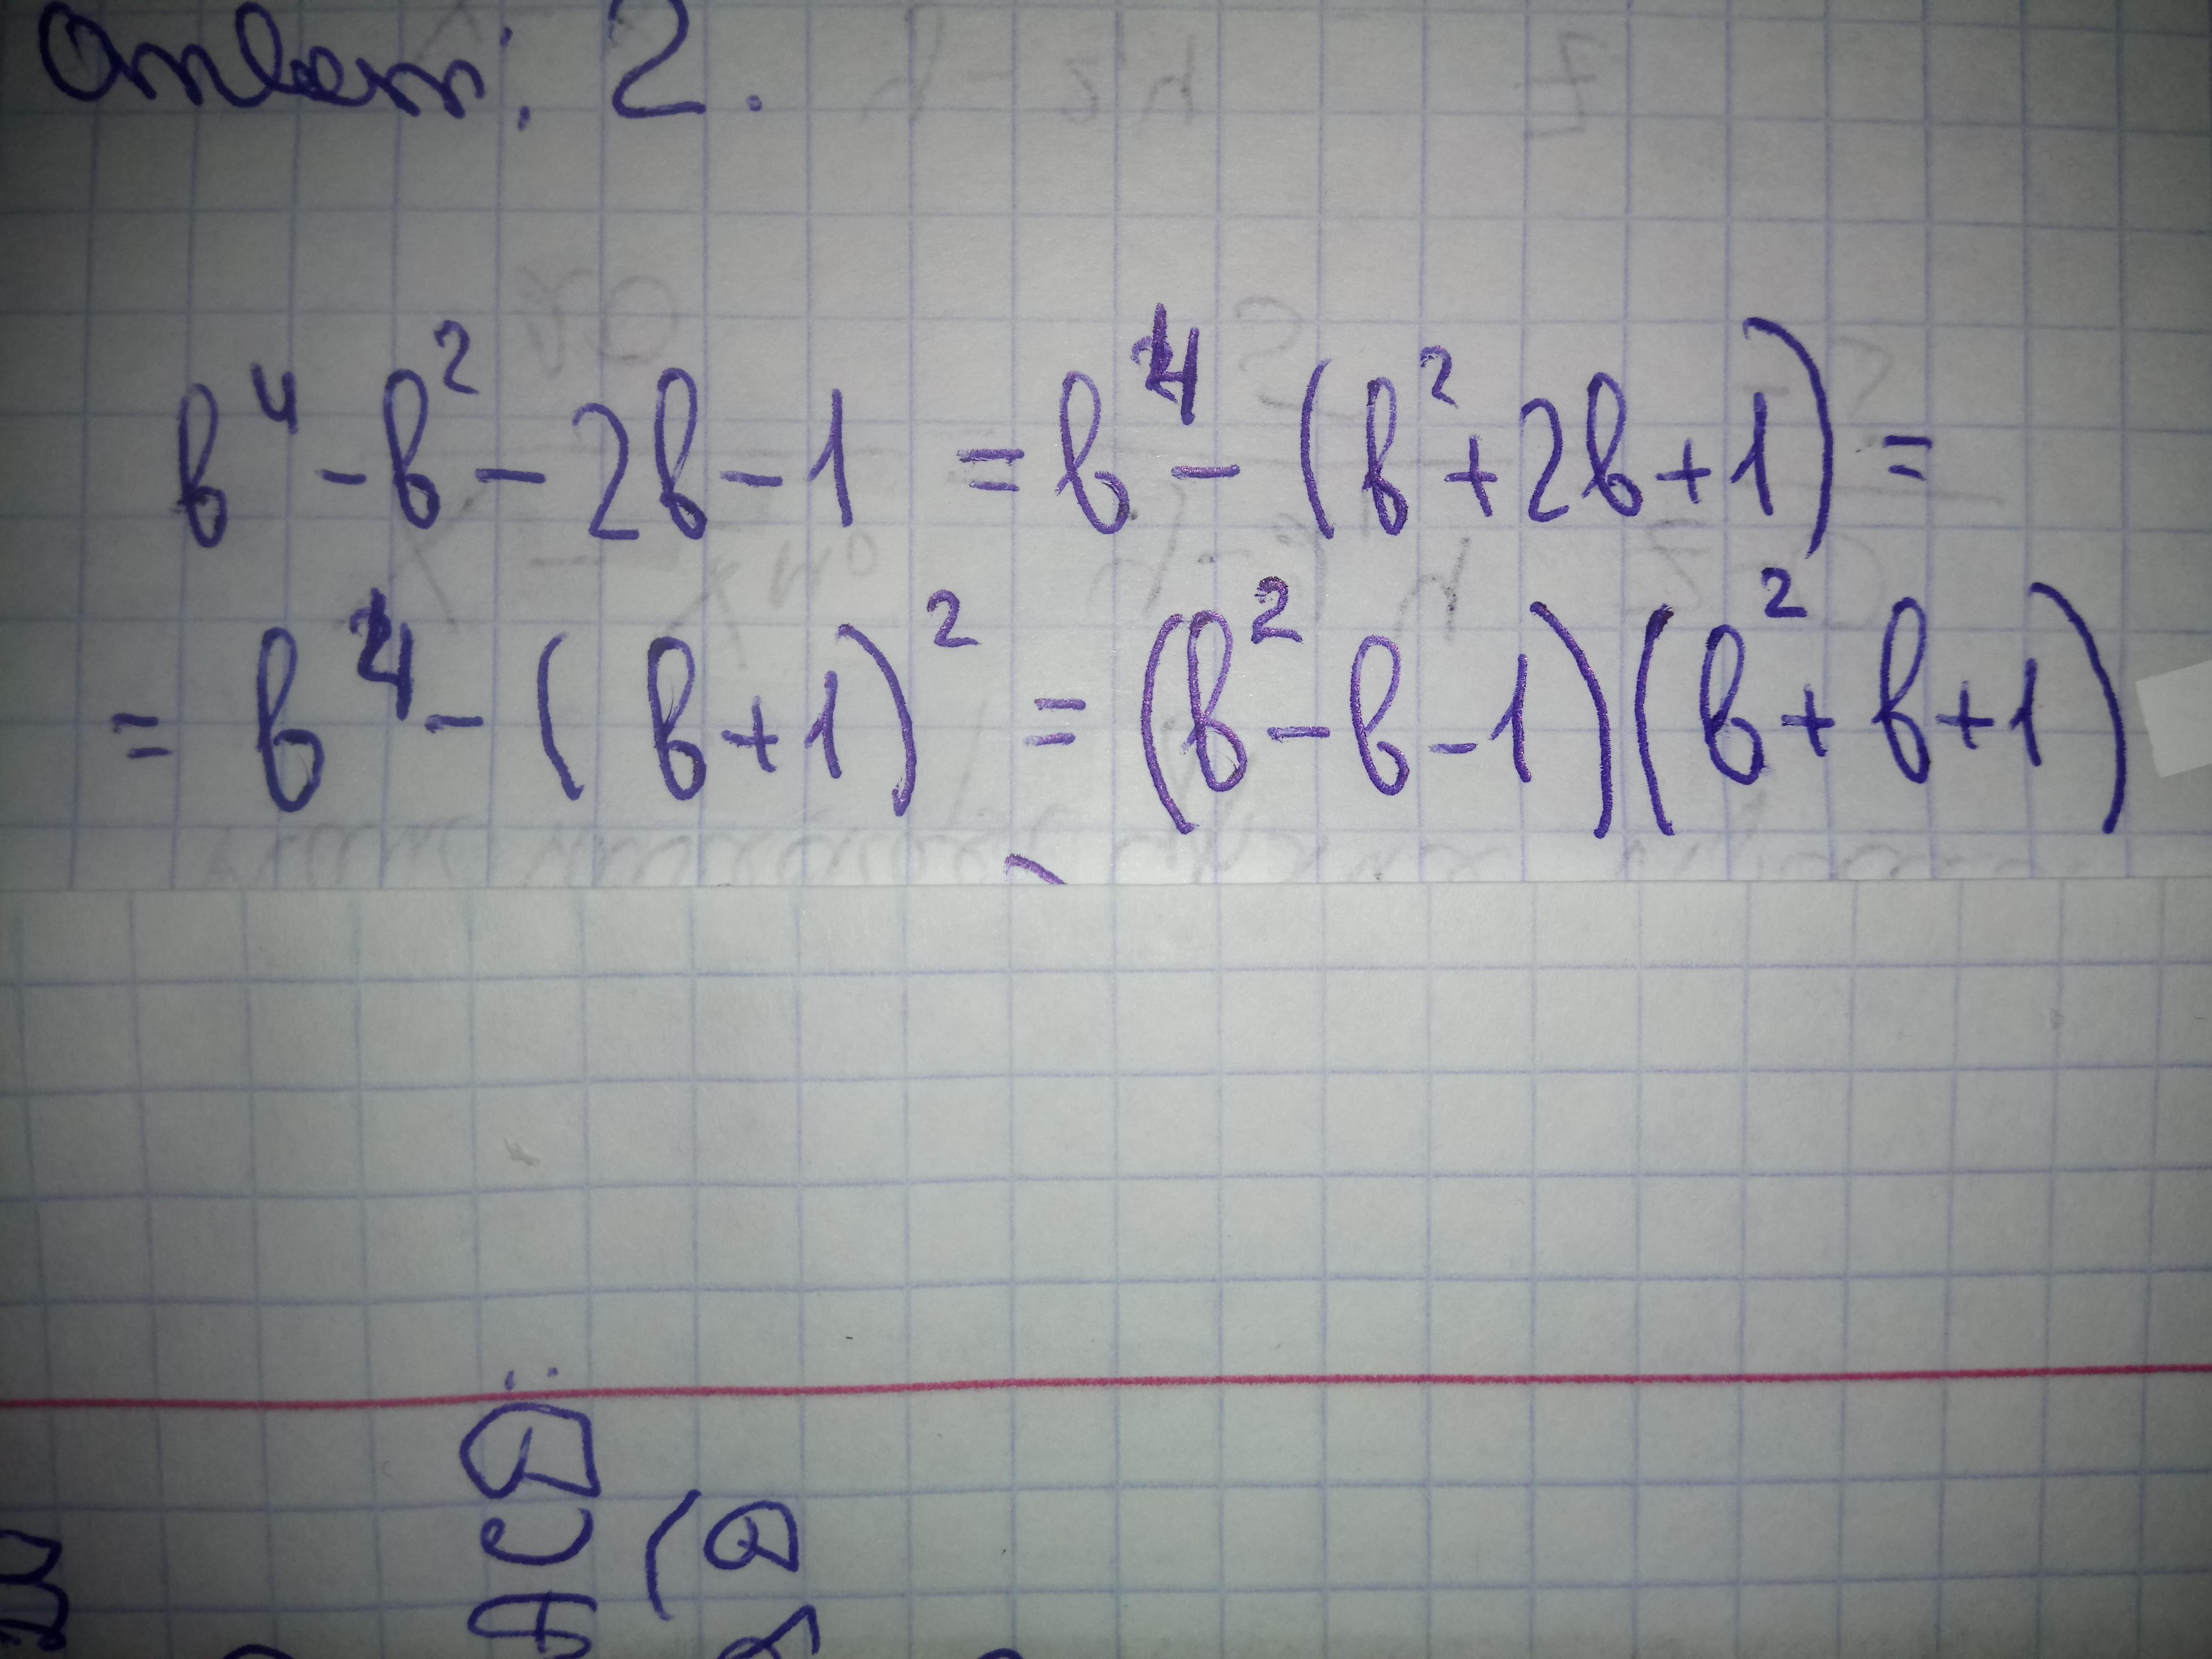 Ответ: 2.
b⁴ - b² - 2b - 1 = b⁴ - (b² + 2b + 1) =
= b⁴ - (b + 1)² = (b² - b - 1)(b² + b + 1)